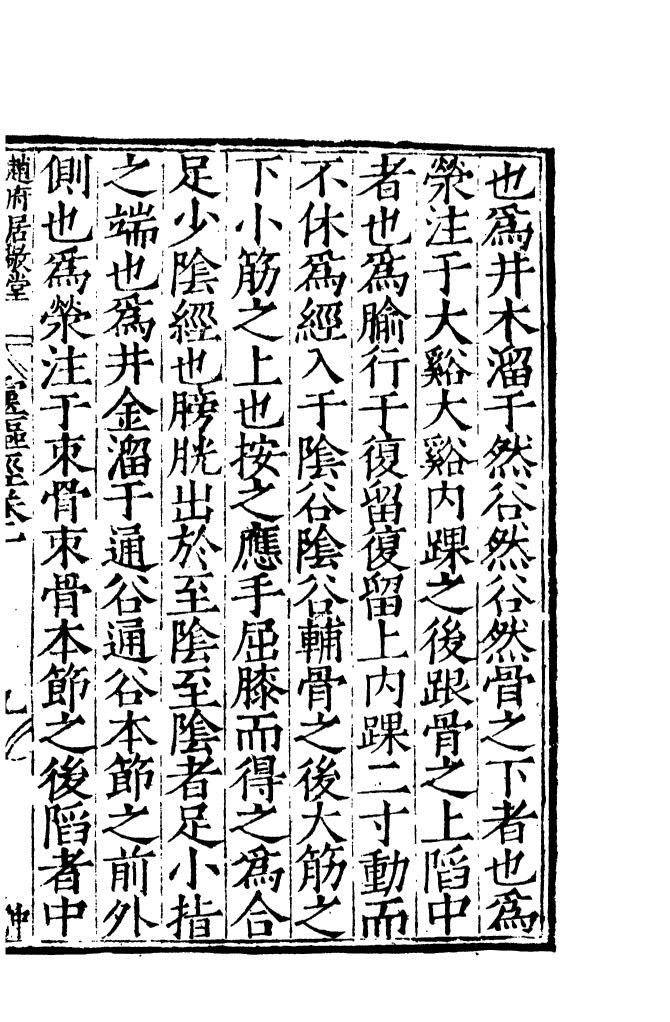 也爲井木溜于然谷然谷然骨之下者也爲
滎注于大谿大谿内踝之後跟骨之上䧟中
者也爲腧行于復留復留上内踝二寸動而
不休爲經入于陰谷陰谷輔骨之後大筋之
下小筋之上也按之應手屈膝而得之爲合
足少陰經也膀胱出於至陰至陰者足小指
之端也爲井金溜于通谷通谷本節之前外
側也爲滎注于束骨束骨本節之後䧟者中
趙府居敬堂 靈樞經卷一 九 仲